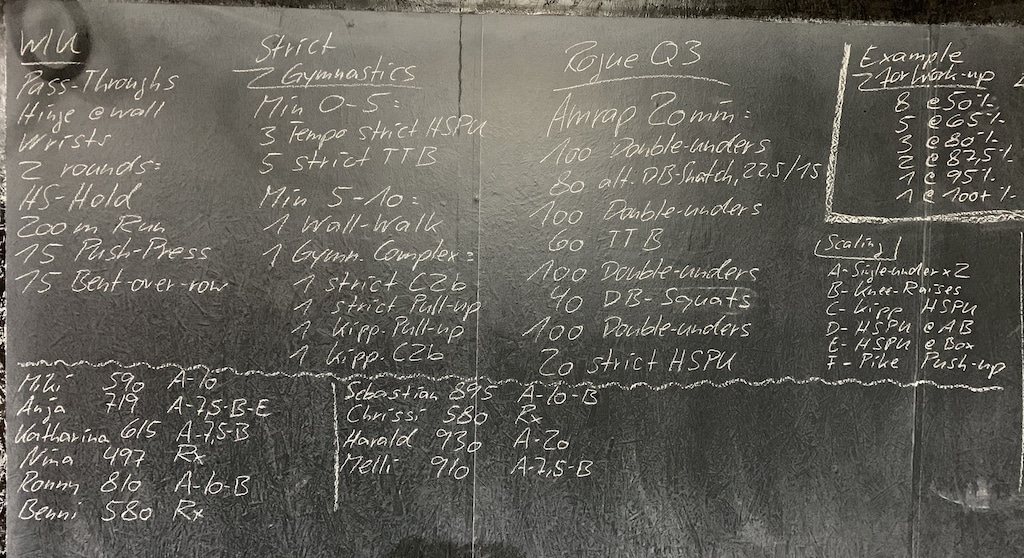 W/U
Pass-Throughs
Hinge @ wall
Wrists
2 rounds:
HS-Hold
200m Run
15 Push-Press
15 Bent-over-row
Strict
Gymnastics
Min 0-5:
3 Tempo strict HSPU
5 strict TTB
Min 5-10:
1 Wall-Walk
1 Gymn. Complex:
1 strict C2b
1 strict Pull-up
1 Kipp. Pull-up
1 Kipp. C2b
Rogue Q3
Amrap 20min:
100 Double-unders
80 alt. DB-Snatch, 22,5/15
100 Double-unders
60 TTB
100 Double-unders
40 DB-Squats
100 Double-unders
20 strict HSPU
Example
for Work-up
8 @ 50%
5 @ 65%
3 @ 80%
2 @ 87,5%
1 @ 95%
1 @ 100+%
Scaling
A- Sigle-under x2
B- Knee-Raises
C- Kipp HSPU
D- HSPU @ AB
E- HSPU @ Box
F- Pike Push-up
Miki 590 A-10
Anja 719 A-7,5-B-E
Katharina 615 A-7,5-B
Nina 497 Rx
Ronny 810 A-10-B
Benni 580 Rx
Sebastian 895 A-10-B
Chrissi 580 Rx
Harald 930 A-20
Melli 910 A-7,5-B